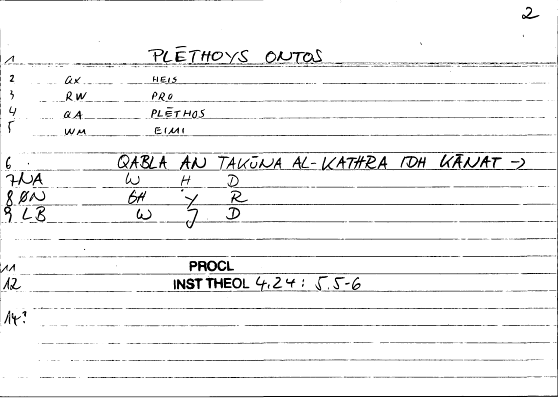 2
1 PLĒTHOYS ONTOS
2 QX HEIS
3 RW PRO
4 QA PLĒTHOS
5 WM EIMI
6 QABLA AN TAKŪNA AL-KATHRA IDH KĀNAT →
7 NA W H D
8 ØN GH Y R
9 LB W J D
11 PROCL
12 INST THEOL 4.24 : 5.5-6
14?